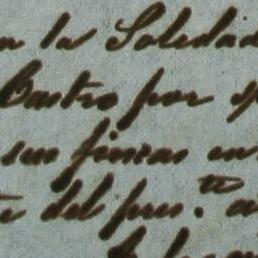 la Soledad
Castro por
sus fincas en
del pres.te